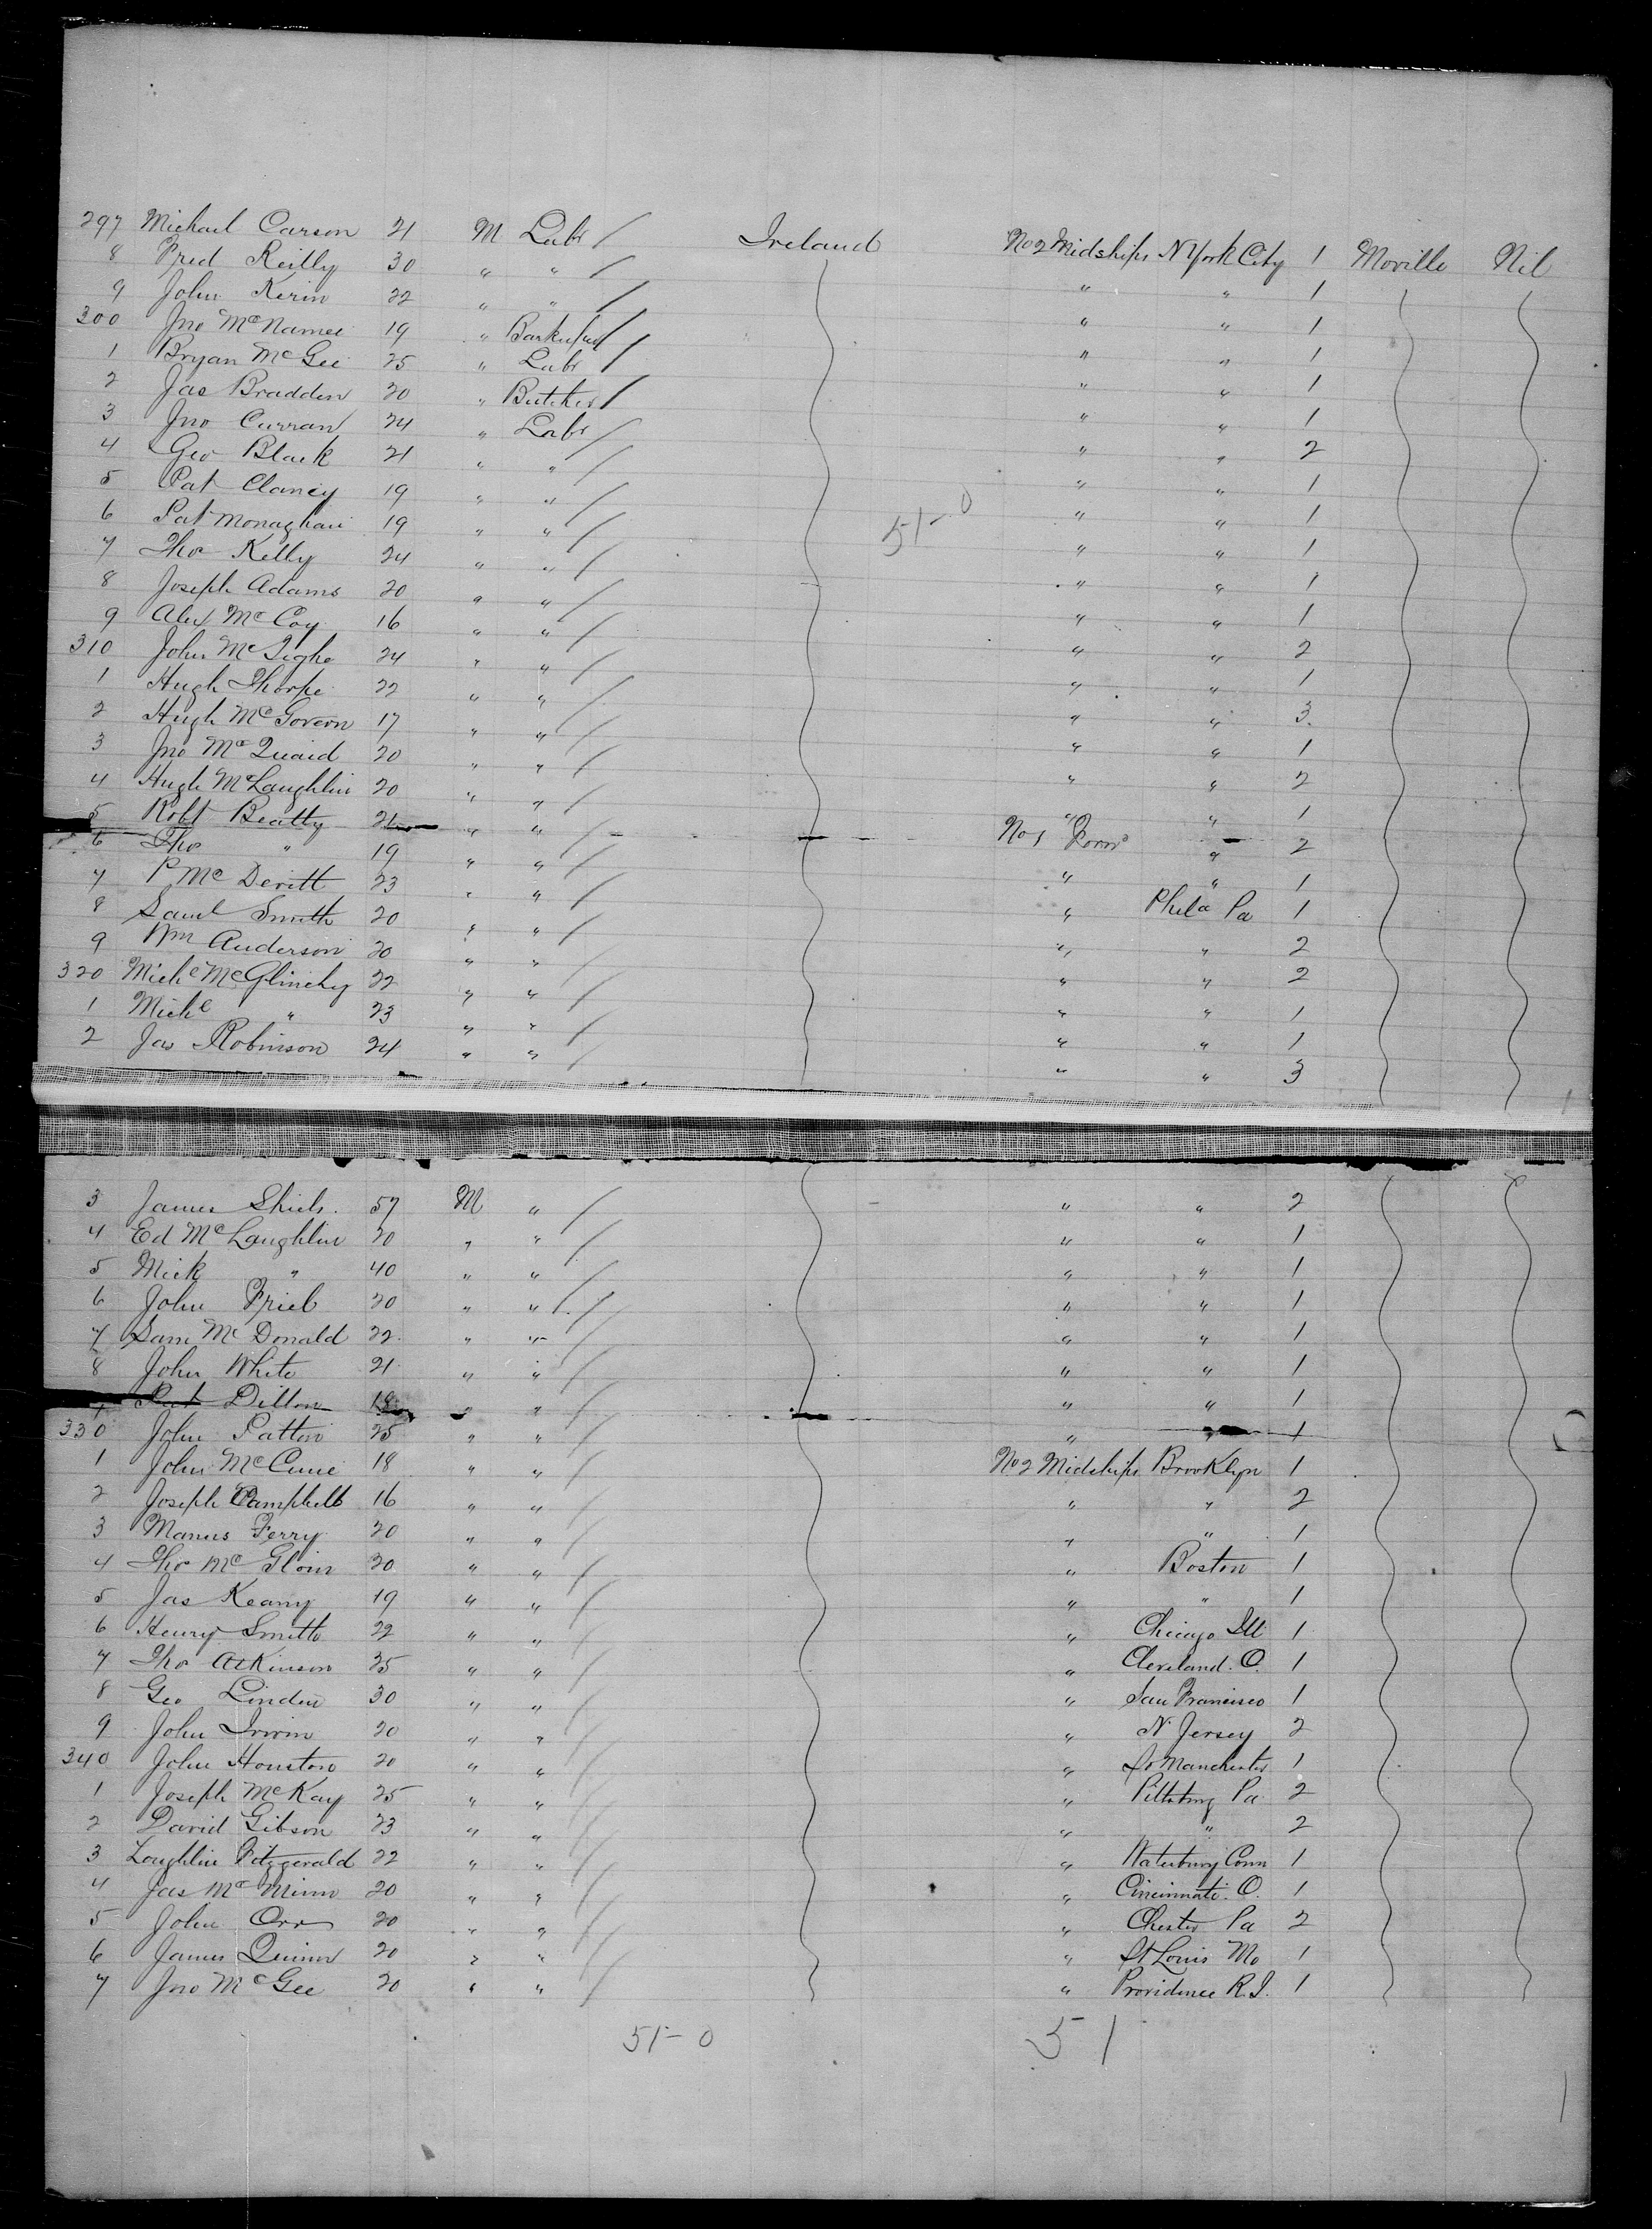 297 Michael Carson 21 M Labr / Ireland No 2 Midships N York City 1 Moville Nil
8 Fred Reilly 30 " " / " " 1
9 John Kerin 22 " " / " " 1
300 Jno McNamee 19 " / " " 1
1 Bryan McGee 25 " Labr / " " 1
2 Jas Bradden 20 " Butcher / " " 1
3 Jno Curran 24 " Labr / " " 2
4 Geo Black 21 " " / " " 1
5 Pat Clancy 19 " " / " " 1
51-0
6 Pat Monaghan 19 " " / " " 1
7 Tho Kelly 24 " " / " " 1
8 Joseph Adams 20 " " / " " 1
9 Alex McCoy 16 " " / " " 2
310 John McTighe 24 " " / " " 1
1 Hugh Thorpe 22 " " / " " 3
2 Hugh McGovern 17 " " / " " 1
3 Jno McQuaid 20 " " / " " 2
4 Hugh McLaughlin 20 " " / " " 1
5 Robt Beatty 21 " " / No 1 Forwd " 2
6 Tho " 19 " " / " " 1
7 P McDevitt 23 " " / " Phila Pa 1
8 Saml Smith 20 " " / " " 2
9 Wm Anderson 20 " " / " " 2
320 Michl McGlinchy 22 " " / " " 1
1 Michl " 23 " " / " " 1
2 Jas Robinson 24 " " / " " 3
3 James Shiels 57 M " / " " 2
4 Ed McLaughlin 20 " " / " " 1
5 Mick " 40 " " / " " 1
6 John Friel 20 " " / " " 1
7 Sam McDonald 22 " " / " " 1
8 John White 21 " " / " " 1
9 Pat Dillon 18 " " / " " 1
330 John Patton 25 " " / " " 1
1 John McCune 18 " " / No 2 Midships Brooklyn 1
2 Joseph Campbell 16 " " / " " 2
3 Manus Ferry 20 " " / " " 1
4 Tho McGloin 20 " " / " Boston 1
5 Jas Keany 19 " " / " " 1
6 Henry Smith 22 " " / " Chicago Ill 1
7 Tho Atkinson 35 " " / " Cleveland. O. 1
8 Geo Linden 30 " " / " San Francisco 1
9 John Irwin 20 " " / " N Jersey 2
340 John Houston 20 " " / " So Manchester 1
1 Joseph McKay 25 " " / " Pittsburg Pa 2
2 David Gibson 23 " " / " " 2
3 Loughlin Fitzgerald 22 " " / " Waterbury Conn 1
4 Jas McMinn 20 " " / " Cincinnati. O. 1
5 John Orr 20 " " / " Chester Pa 2
6 James Quinn 20 " " / " St Louis Mo 1
7 Jno McGee 20 " " / " Providence R.I. 1
51-0 51